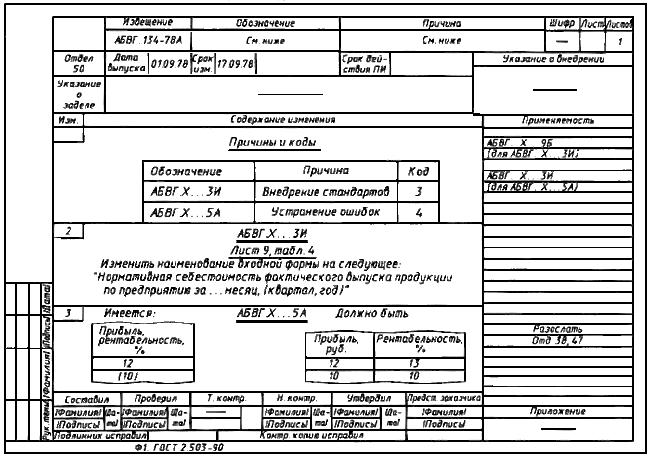 Извещение Обозначение Причина Шифр Лист Листов
АБВГ.134-78А См. ниже См. ниже — 1
Отдел 50 Дата выпуска 01.09.78 Срок изм. 17.09.78 Срок действия ПИ Указание о внедрении
Указание о заделе
Изм. Содержание изменения Применяемость
Причины и коды
АБВГ. Х... 9Б
(для АБВГ. Х... 3И)
АБВГ. Х... 3И
(для АБВГ. Х... 5А)
Обозначение Причина Код
АБВГ.Х... 3И Внедрение стандартов 3
АБВГ.Х... 5А Устранение ошибок 4
2 АБВГ.Х... 3И
Лист 9, табл. 4
Изменить наименование входной формы на следующее:
"Нормативная себестоимость фактического выпуска продукции
по предприятию за ... месяц, (квартал, год)"
3 Имеется: АБВГ.Х... 5А Должно быть
Прибыль, рентабельность, %
12
(10)
Прибыль, руб. Рентабельность, %
12 13
10 10
Разослать
Отд 38, 47
Составил Проверил Т. контр. Н. контр. Утвердил Предст. заказчика
(Фамилия) (Дата) (Фамилия) (Дата) — (Фамилия) (Дата) (Фамилия) (Дата) (Фамилия)
(Подпись) (Подпись) (Подпись) (Подпись) (Подпись)
Приложение
Подлинник исправил Контр. копию исправил
Ф1. ГОСТ 2.503-90
Рук. темы (Фамилия) (Подпись) (Дата)